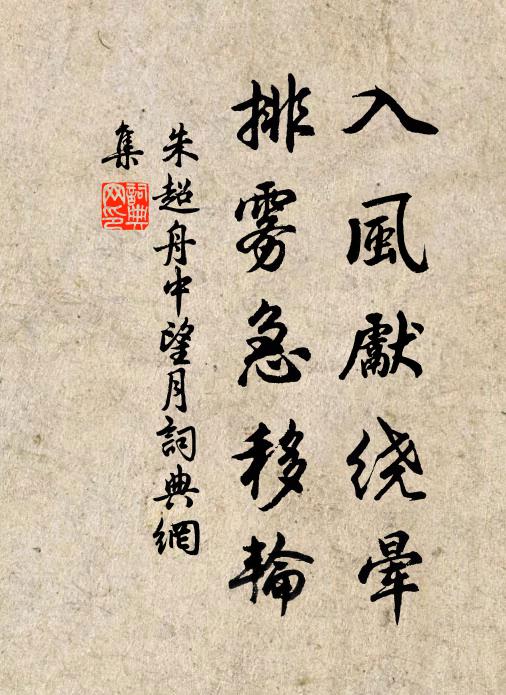 入風獻绕暈
排雾急移輪
朱超舟中望月詞典網
集
詞典
网印